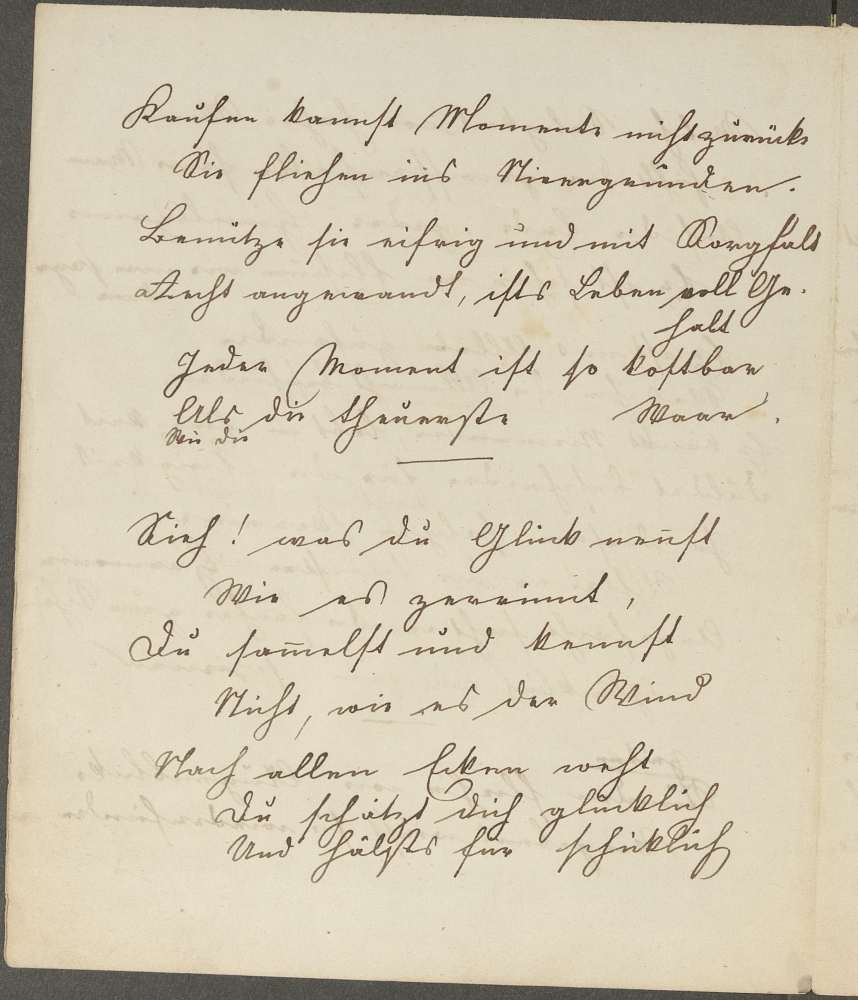 Kaufen kannst Momente nicht zurück
Sie fliehen ins
Benütze sie eifrig und mit Sorgfalt
Recht angewandt, ists Leben voll Ge-
halt
Jeder Moment ist so kostbar
Als die theuerste Waar.
Wie die
Sieh! was du Glück nen̄st
Wie es zerrinnt,
Du sam̄elst und kennst
Nicht, wie es der Wind
Nach allen Ecken weht
Du schätzt dich glücklich
Und hälsts für schicklich